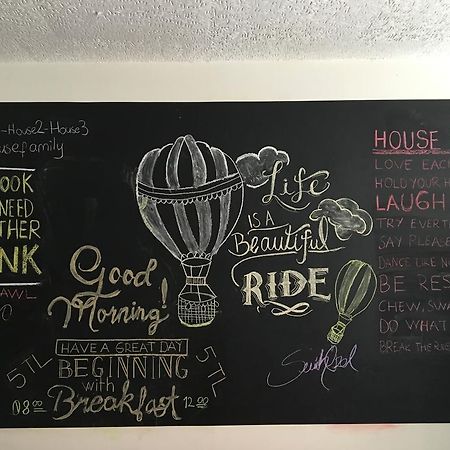 -House2-House3
usefamily
OOK
NEED
THER
NK
AWL
Good
Morning!
HAVE A GREAT DAY
BEGINNING
with
Breakfast
5TL
5TL
08 00
12 00
Life
IS A
Beautiful
RIDE
HOUSE
LOVE EACH
HOLD YOUR
LAUGH
TRY EVERT
SAY PLEASE
DANCE LIKE NO
BE RES
CHEW, SWA
DO WHAT
BREAK THE RU